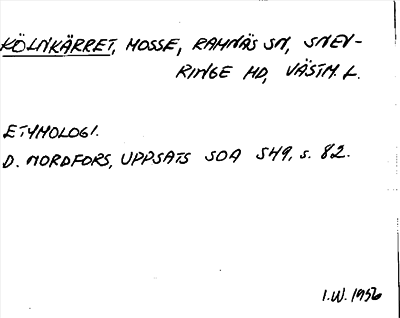 KÖLNKÄRRET, MOSSE, RAMNÄS SN, SNEV-
RINGE HD, VÄSTM. L.
ETYMOLOGI.
D. NORDFORS, UPPSATS SOA 549, s. 82.
I.W. 1956